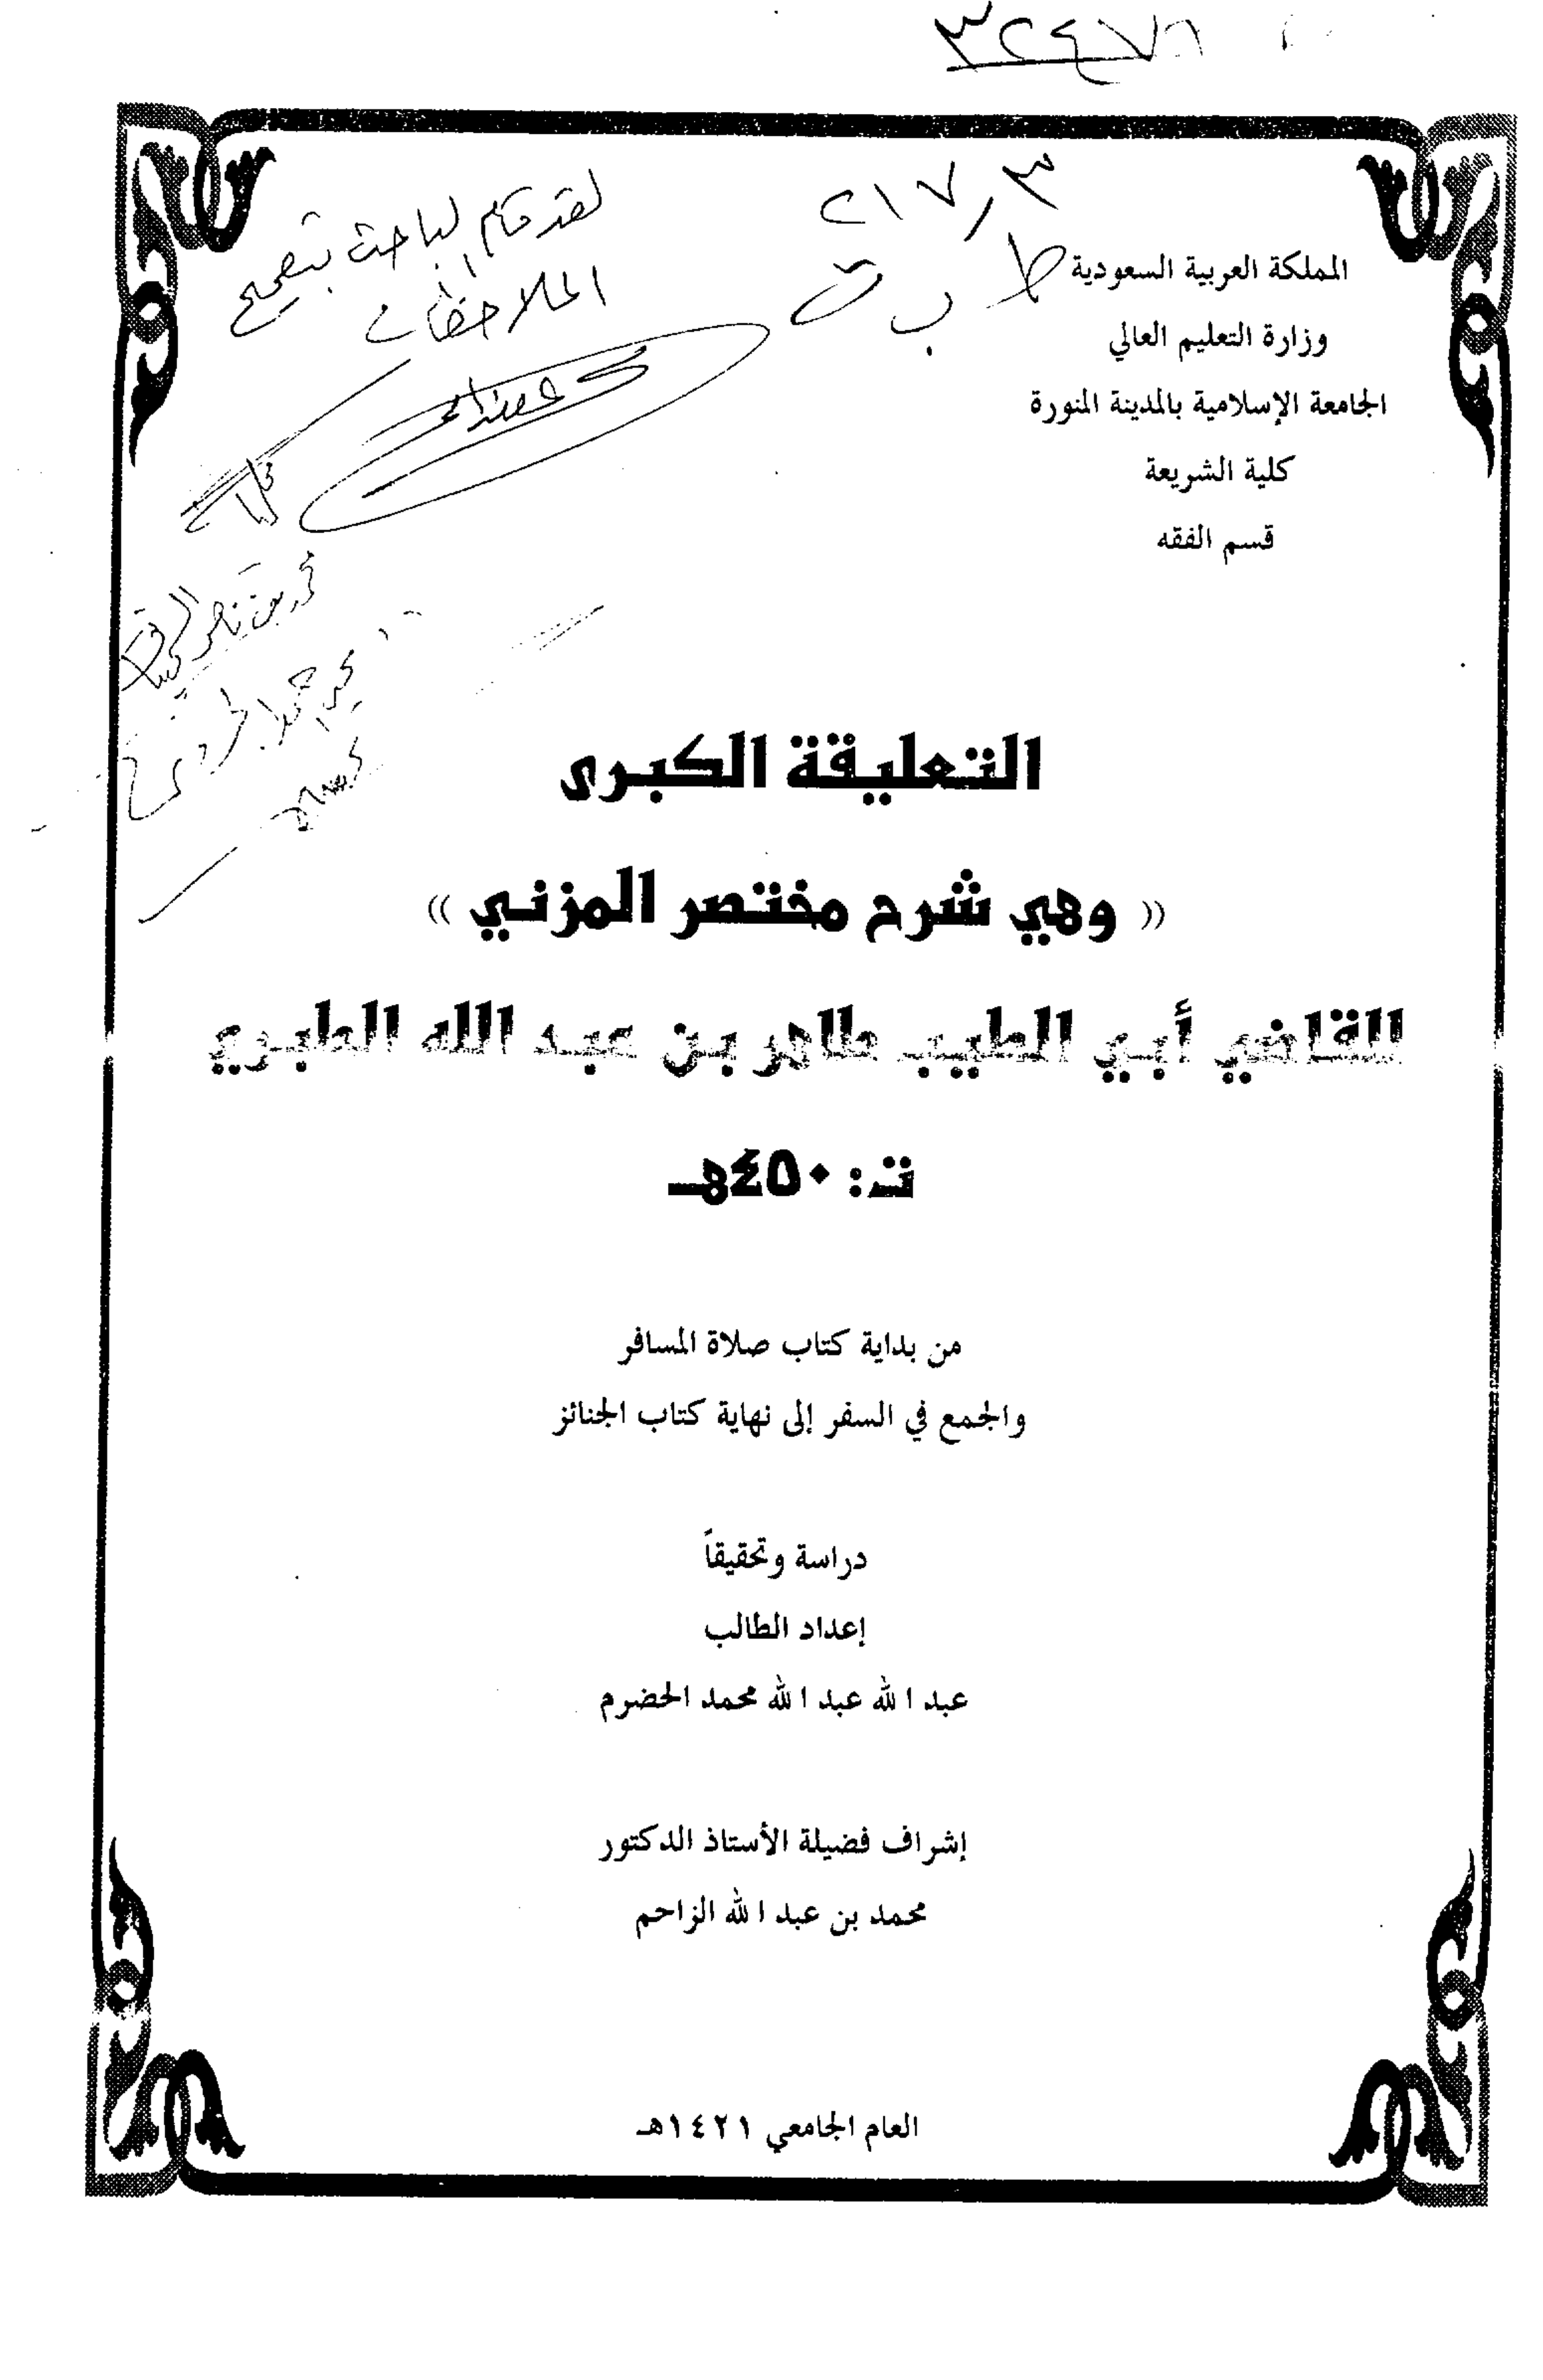 ٣٢٤٧٦
٢١٧٫٣
ط ب ت
لقد قام الباحث بتصحيح
الملاحظات
المملكة العربية السعودية
وزارة التعليم العالي
الجامعة الإسلامية بالمدينة المنورة
كلية الشريعة
قسم الفقه
التعليقة الكبرى
(( وهي شرح مختصر المزني ))
للقاضي أبي الطيب طاهر بن عبد الله الطبري
ت: ٤٥٠هـ
من بداية كتاب صلاة المسافر
والجمع في السفر إلى نهاية كتاب الجنائز
دراسة وتحقيقاً
إعداد الطالب
عبد الله عبد الله محمد الحضرم
إشراف فضيلة الأستاذ الدكتور
محمد بن عبد الله الزاحم
العام الجامعي ١٤٢١هـ